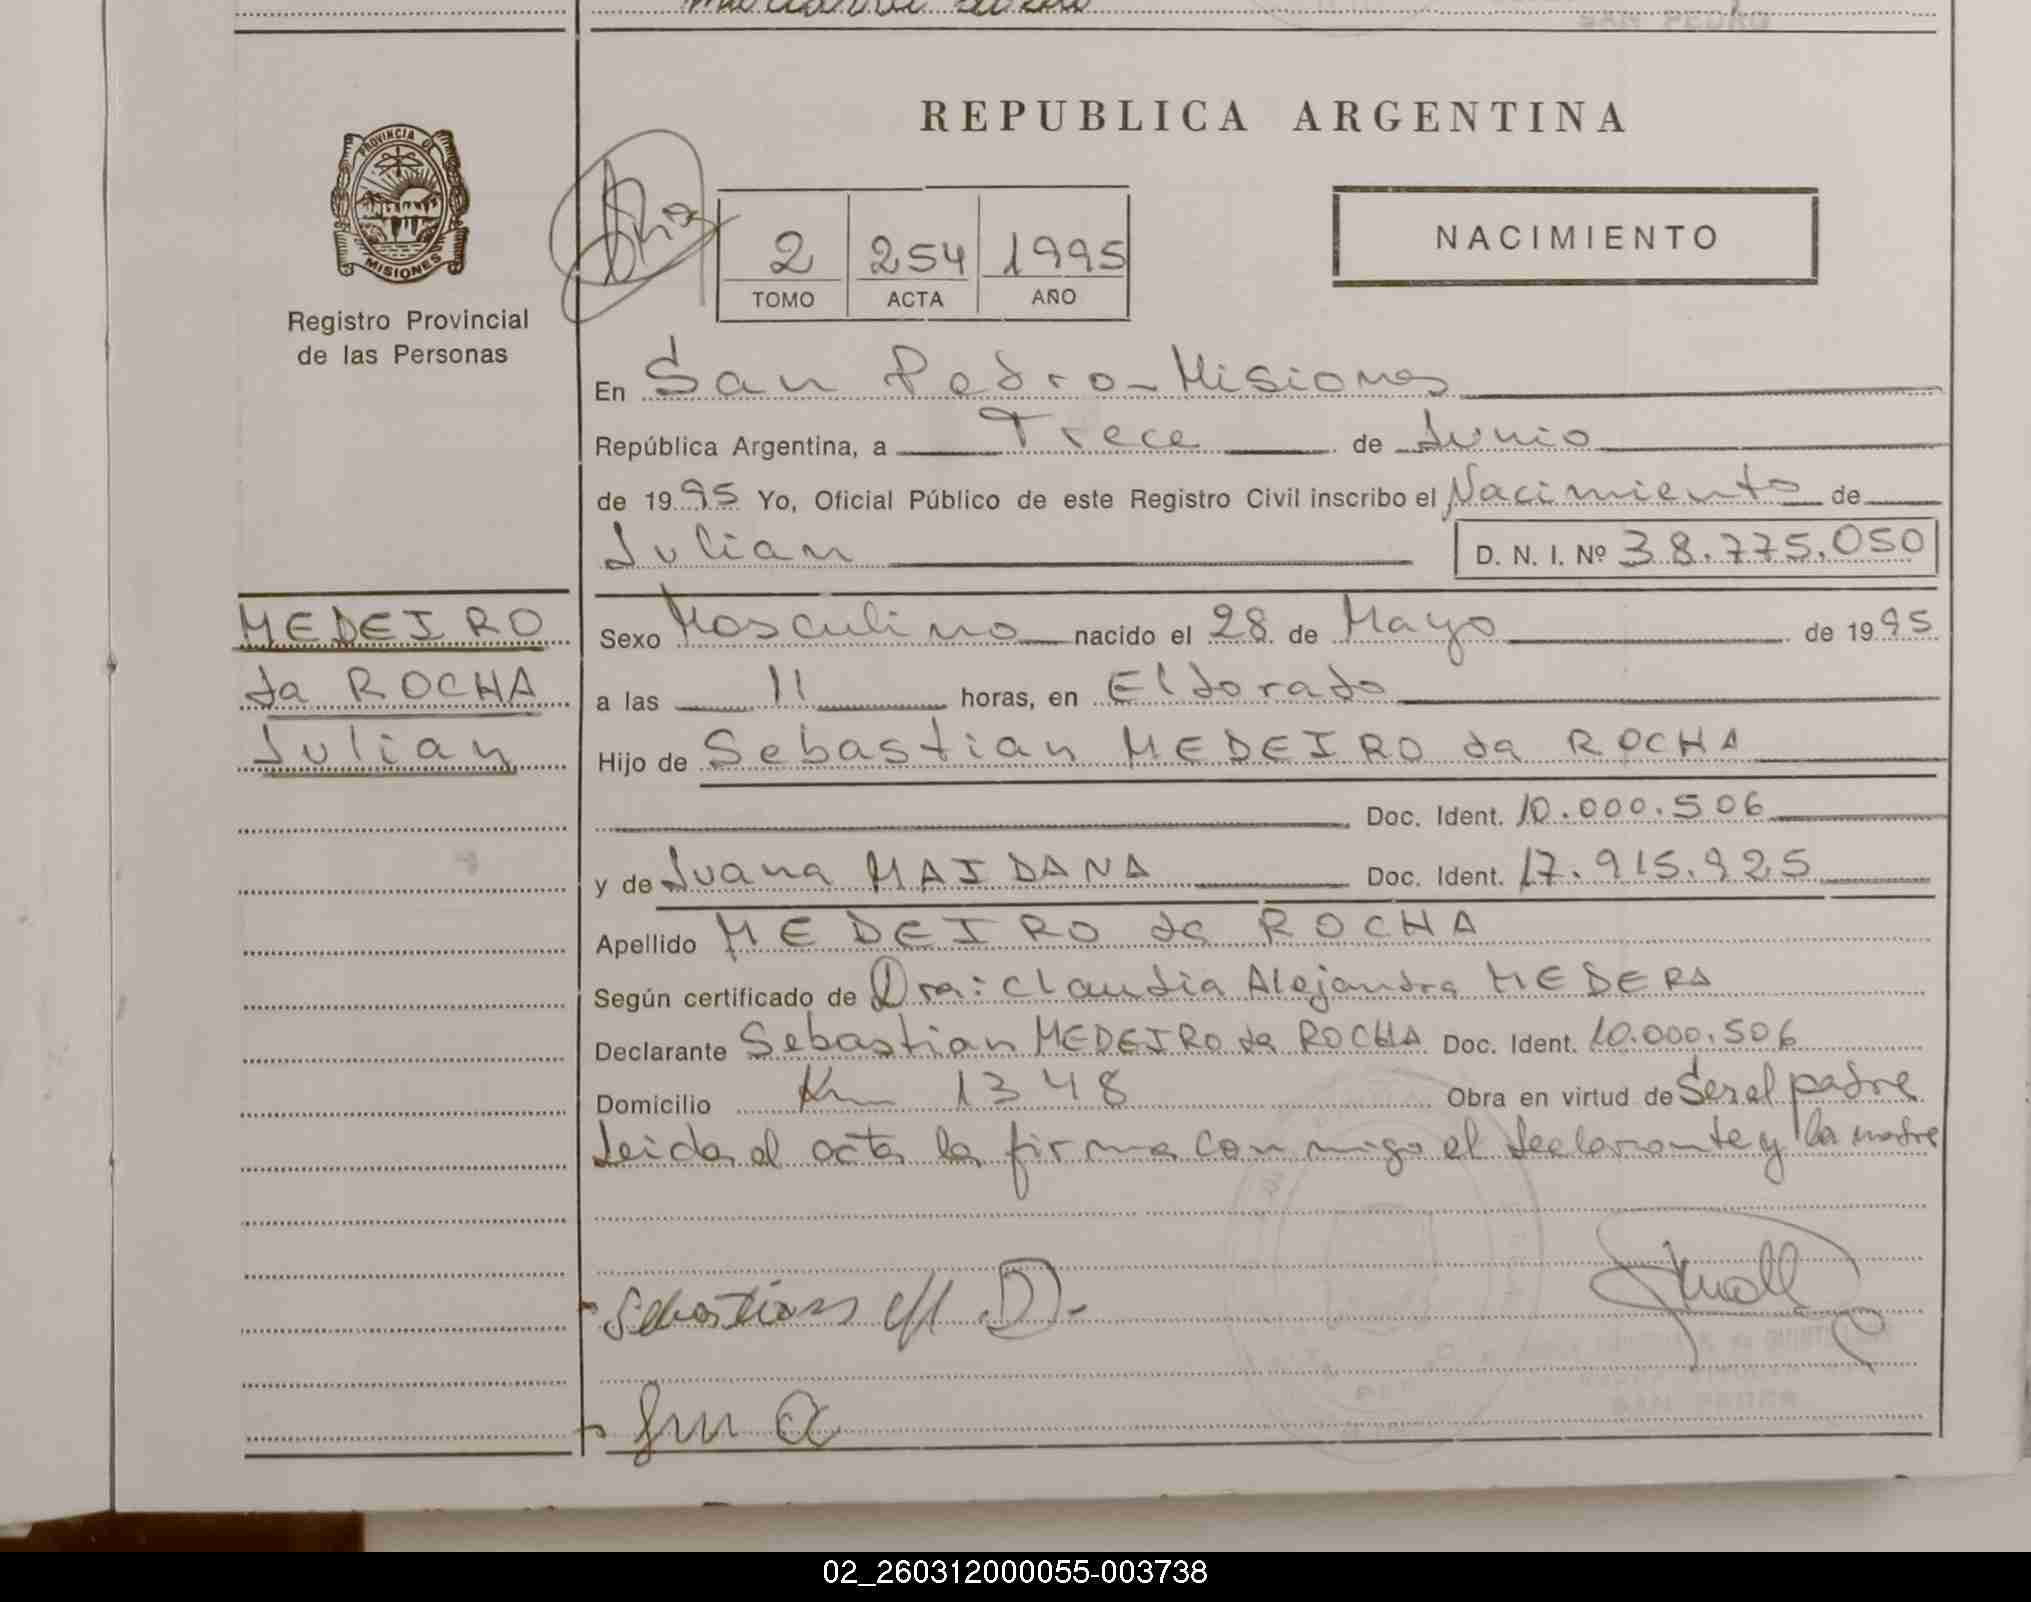 REPUBLICA ARGENTINA
PROVINCIA DE
MISIONES
Registro Provincial
de las Personas
2 254 1995
TOMO ACTA AÑO
NACIMIENTO
En San Pedro-Misiones
República Argentina, a Trece de Junio
de 1995 Yo, Oficial Público de este Registro Civil inscribo el Nacimiento de
Julian D. N. I. Nº 38.775.050
MEDEIRO
da ROCHA
Julian
Sexo Masculino nacido el 28 de Mayo de 1995
a las 11 horas, en Eldorado
Hijo de Sebastian MEDEIRO da ROCHA
Doc. Ident. 10.000.506
y de Juana MAIDANA Doc. Ident. 17.915.925
Apellido MEDEIRO da ROCHA
Según certificado de Dra: Claudia Alejandra MEDERA
Declarante Sebastian MEDEIRO da ROCHA Doc. Ident. 10.000.506
Domicilio Km 1348 Obra en virtud de Ser el padre
Leida el acta la firma conmigo el declarante y la madre
Sebastian M. D.
SAN PEDRO
02_260312000055-003738